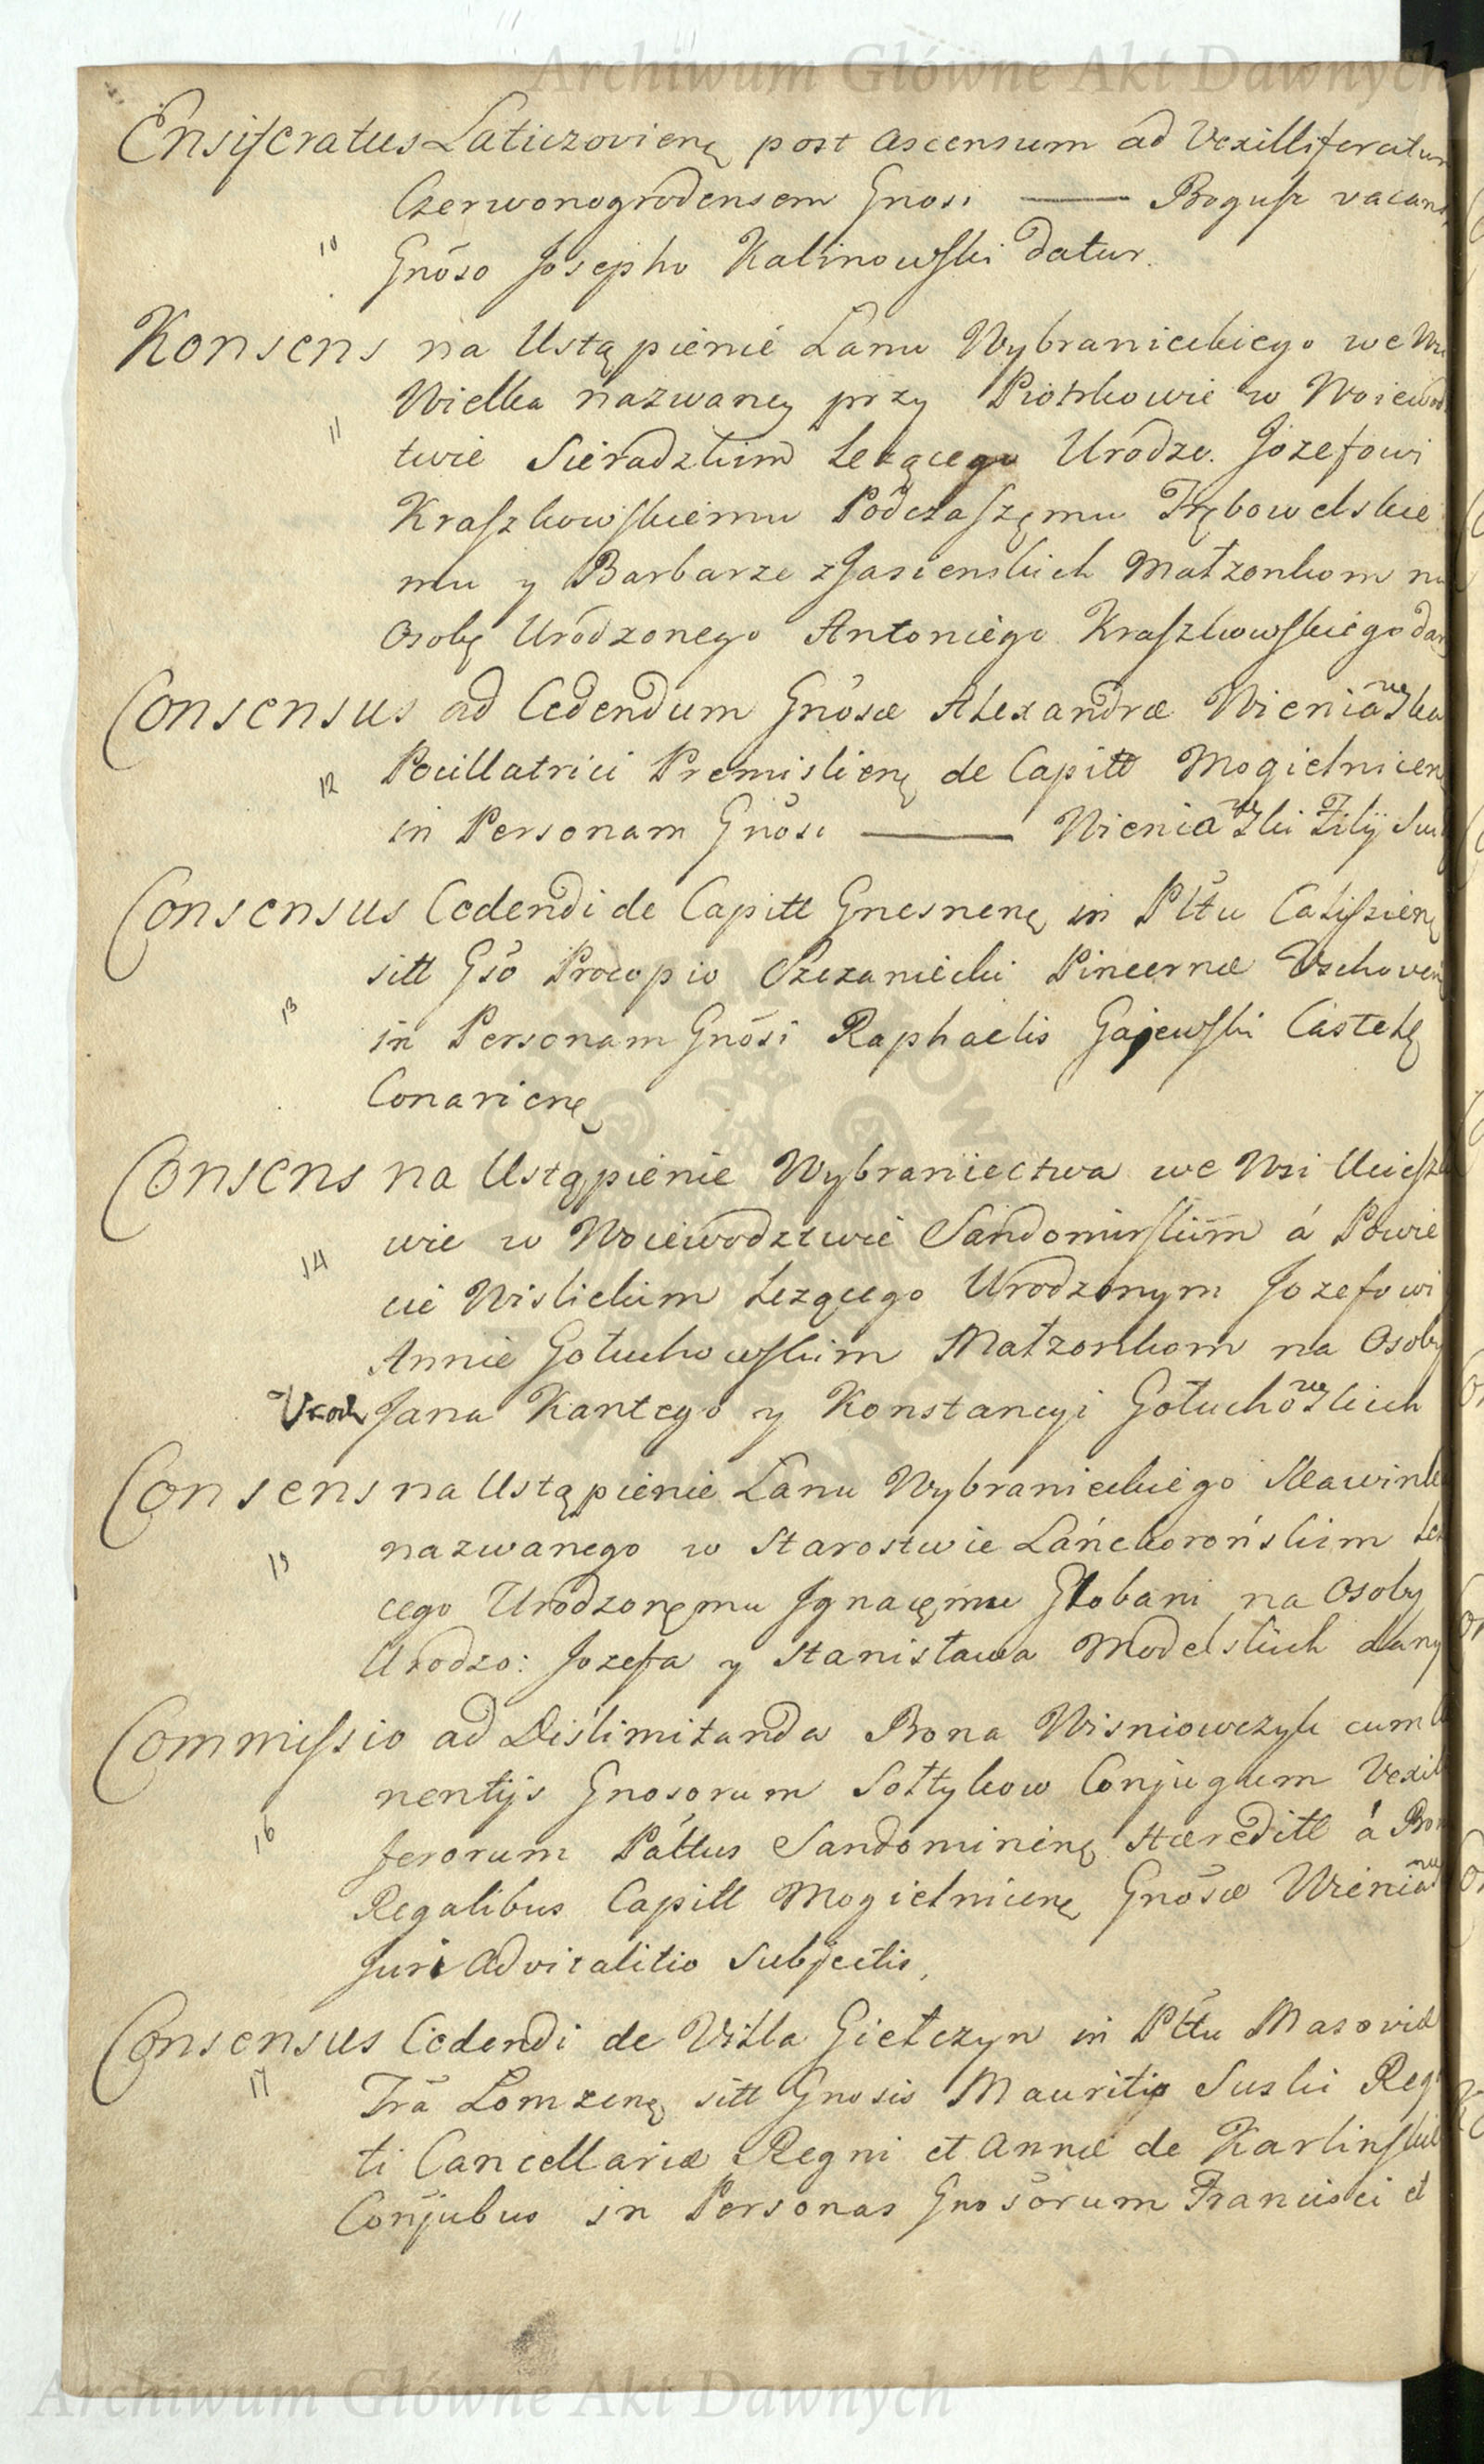 Archiwum Główne Akt Dawnych
Ensiferatus Laticzoviens post ascensum ad Vexilliferatum
Czerwonogrodensem Gnosi —— Bogusz vacans
10 Gnoso Josepho Kalinowski datur.
Konsens na Ustąpienie Łanu Wybranieckiego we Wsi
Wielka nazwaney przy Piotrkowie w Woiewodz
11 twie Sieradzkim Leżącego Urodzo. Jozefowi
Kraszkowskiemu Podczaszemu Trębowelskie
mu y Barbarze z Jasienskich Małżonkom na
Osobę Urodzonego Antoniego Kraszkowskiego dany
Consensus ad Cedendum Gnosæ Alexandræ Wieniawska
12 Pocillatrici Premisliens de Capittu Mogielnicens
in Personam Gnosi —— Wieniawski Filij Sui
Consensus Cedendi de Capittu Gnesnens in Pttu Calissiens
sitt Gso Procopio Szczaniecki Pincernæ Vschovens
13 in Personam Gnosi Raphaelis Gajewski Castell
Conariens
Consens na Ustąpienie Wybraniectwa we Wsi Uciesz
14 wie w Woiewodztwie Sandomirskim á Powie
cie Wislickim Leżącego Urodzonym Jozefowi
Annie Gołuchowskim Małżonkom na Osoby
Urodz Jana Kantego y Konstancyi Gołuchowskich
Consens na Ustąpienie Łanu Wybranieckiego
15 nazwanego w Starostwie Lanckorońskim Leż
cego Urodzonemu Ignacemu Globani na Osoby
Urodzo: Jozefa y Stanisława Modelskich dany
Commissio ad Dislimitanda Bona Wisniowczyk cum
nentijs Gnosorum Sołtykow Conjugum Vexili
16 ferorum Pattus Sandomiriens Hæreditt á Bonis
Regalibus Capitt Mogielnicens Gnosæ Wieniaw
Juri Advitalitio Subjectis,
Consensus Cedendi de Villa Giełczyn in Pttu Masoviæ
17 Tra Lomzens sitt Gnosis Mauritio Suski Regen
ti Cancellariæ Regni et Annæ de Karlinskie
Conjubus in Personas Gnosorum Francisci et
Archiwum Główne Akt Dawnych